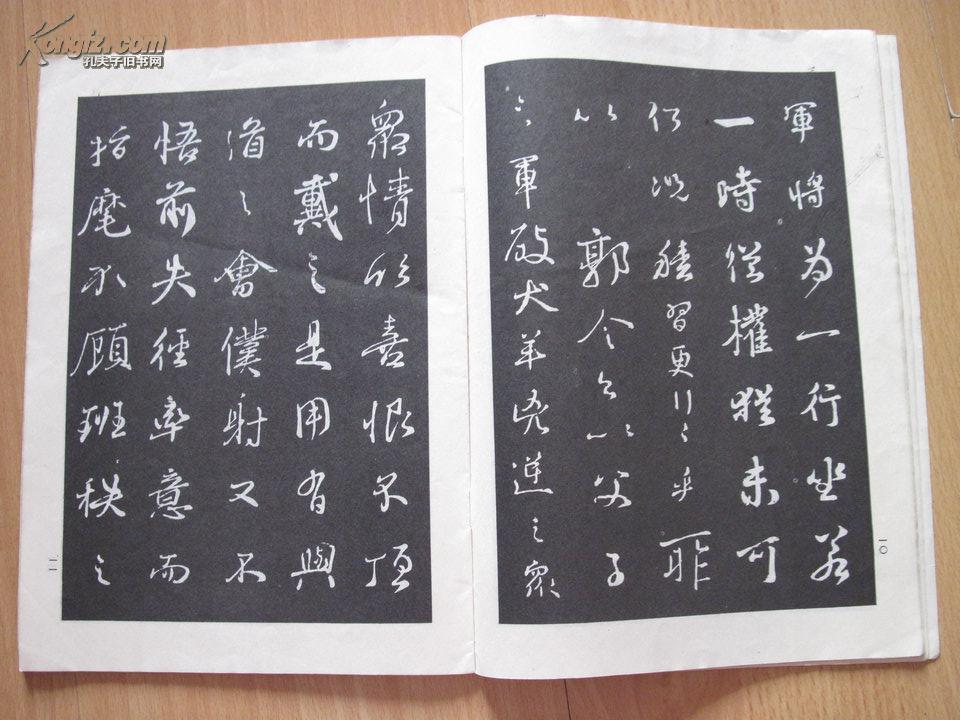 Kongfz.com
孔夫子旧书网
軍將為一行坐若
一時從權猶未可
何況積習更行之乎一昨
以郭令公以父子
之軍破犬羊兇逆之眾
一〇
眾情欣喜恨不頂
而戴之是用有興
道之會僕射又不
悟前失徑率意而
指麾不顧班秩之
一一